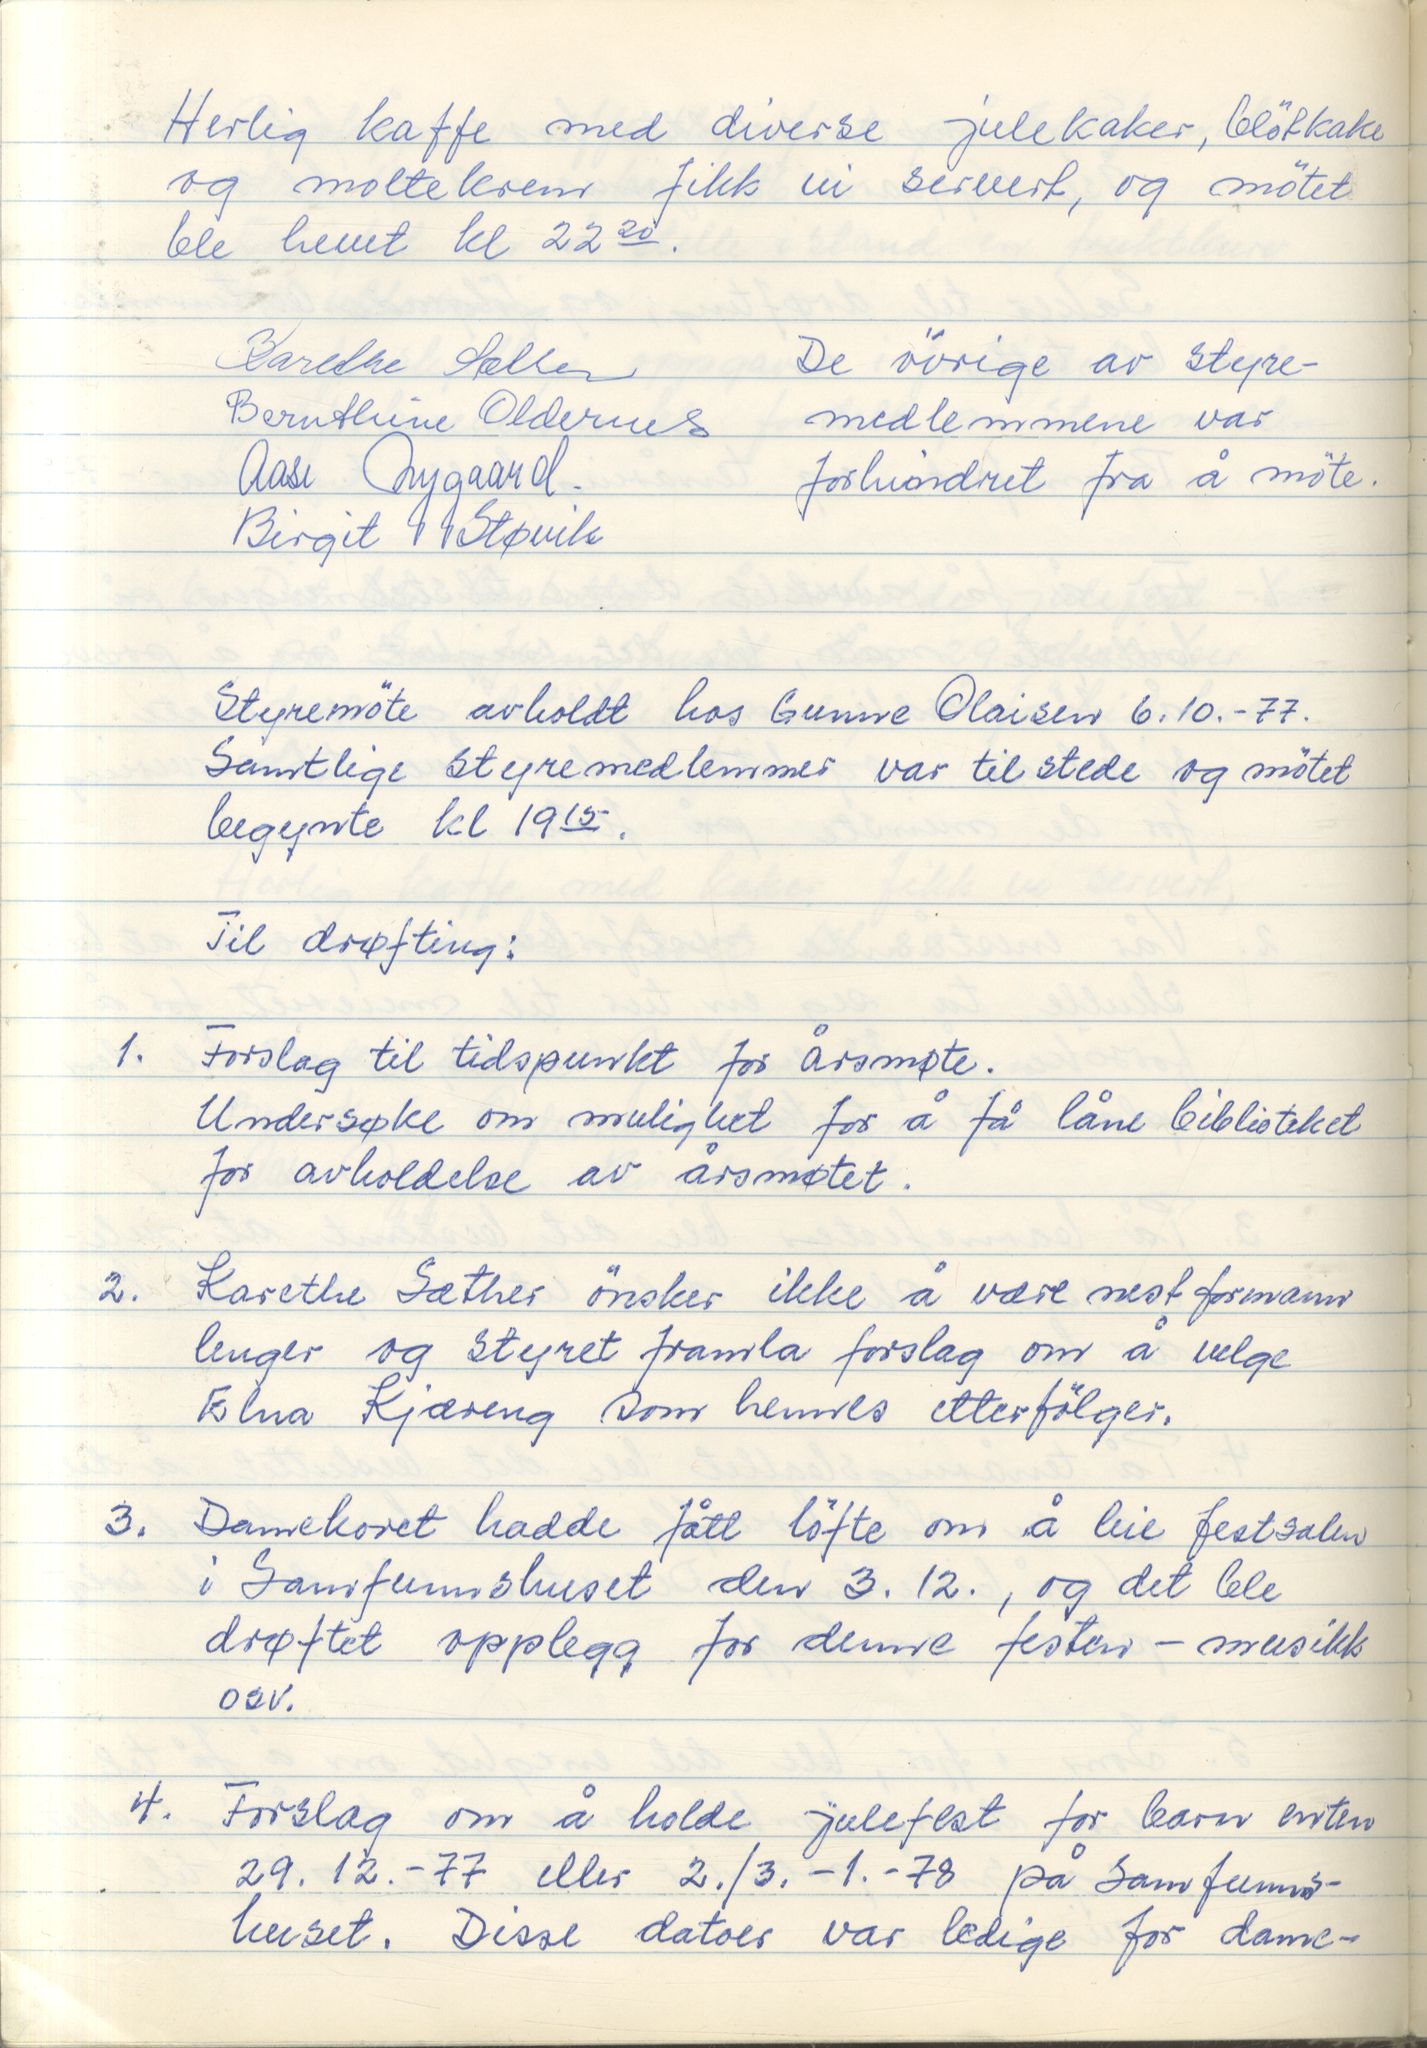 Herlig kaffe med diverse julekaker, blötkake
og moltekrem fikk vi servert, og mötet
ble hevet kl 22 20.
Karethe Sæther
Bernthine Oldernes
Aase Nygaard.
Birgit Støvik
De övrige av styre-
medlemmene var
forhindret fra å möte.
Styremöte avholdt hos Gunne Olaisen 6.10.-77.
Samtlige styremedlemmer var tilstede og mötet
begynte kl 19 15.
Til drøfting:
1. Forslag til tidspunkt for årsmøte.
Undersøke om mulighet for å få låne biblioteket
for avholdelse av årsmøtet.
2. Karethe Sæther önsker ikke å være nestformann
lenger og styret framla forslag om å velge
Elna Kjæreng som hennes etterfölger.
3. Damekoret hadde fått löfte om å leie festsalen
i Samfunnshuset den 3.12., og det ble
drøftet opplegg for denne festen - musikk
osv.
4. Forslag om å holde julefest for barn enten
29.12.-77 eller 2./3.-1.-78 på Samfunns-
huset. Disse datoer var ledige for dame-